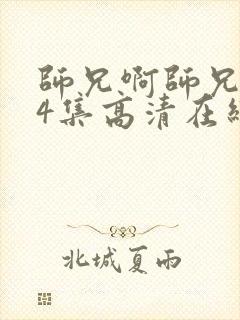 師兄啊師兄
4集高清在
北城夏雨